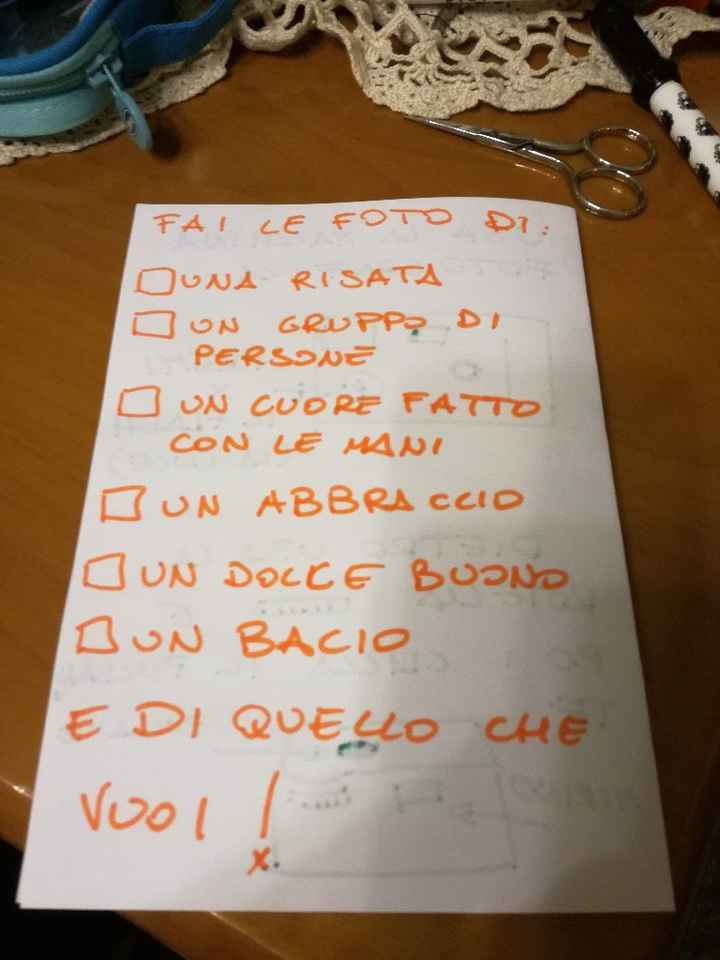 FAI LE FOTO DI:
UNA RISATA
UN GRUPPO DI
PERSONE
UN CUORE FATTO
CON LE MANI
UN ABBRACCIO
UN DOLCE BUONO
UN BACIO
E DI QUELLO CHE
VUOI !